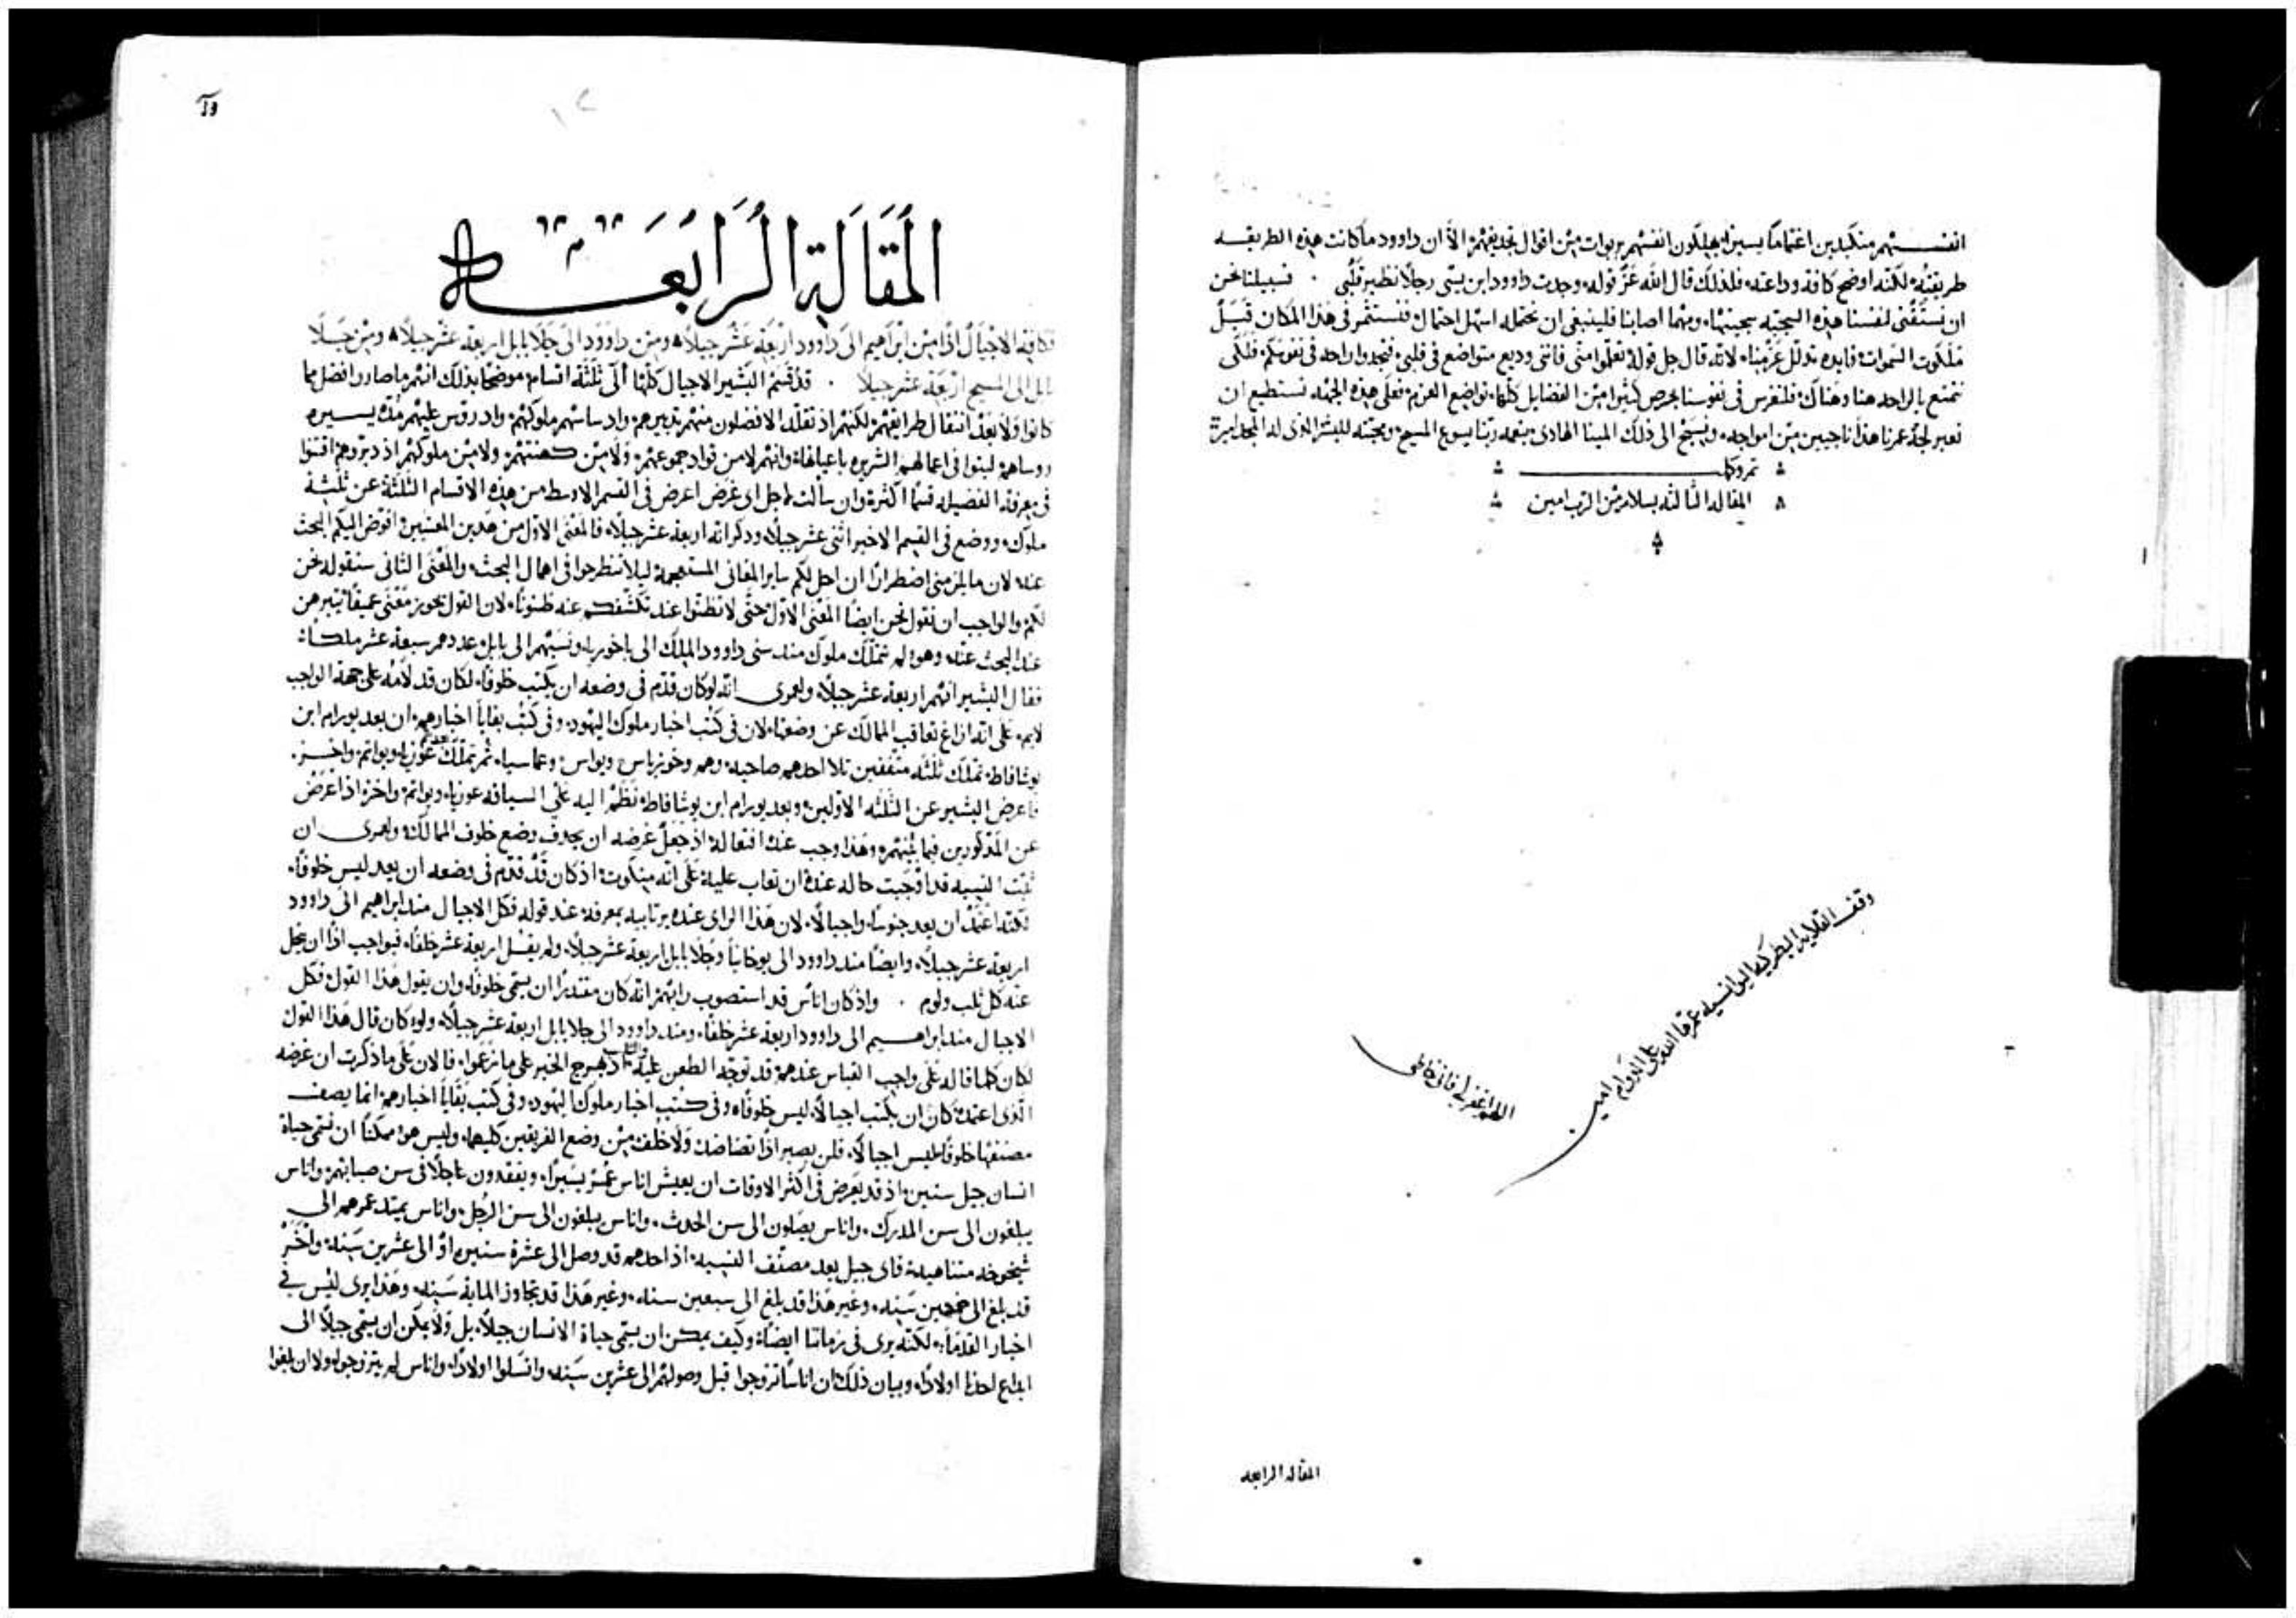 انفسهم متكبدين اغتماما يسيرا يهلكون انفسهم بربوات من اقوال تجديفهم الا ان داوود ما كانت هذه الطريقه
طريقته لكنه اوضح كافة وداعته فلذلك قال الله عز قوله وجدت داوود ابن يسى رجلا نظير قلبي . فسبيلنا نحن
ان نستقني لنفسنا هذه السجيه ومهما اصابنا فلينبغي ان نحتمله اسهل احتمال فنستثمر في هذا المكان قبل
ملكوت السموات فايده تذلل عزمنا لانه قال جل قوله تعلموا مني فانني وديع متواضع في قلبي فتجدوا راحه في نفوسكم فلكي
نتمتع بالراحه هنا وهناك فلنغرس في نفوسنا بحرص كثير ام الفضايل كلها تواضع العزم فعلى هذه الجهه نستطيع ان
نعبر لجة عمرنا هذا ناجيين من امواجه الى ذلك المينا الهادي بنعمه ربنا يسوع المسيح ومحبته للبشر الذي له المجد امين
تم وكل
المقاله الثالثه بسلام من الرب امين
وقف القلايه البطريكيه
على الدوام امين
اللهم اغفر لي فاني خاطي
المقاله الرابعه
المقالة الرابعه
فكافة الاجيال اذا من ابراهيم الى داوود اربعة عشر جيلا ومن داوود الى جلا بابل اربعة عشر جيلا ومن جلا
بابل الى المسيح اربعة عشر جيلا . قد قسم البشير الاجيال كلها الى ثلثة اقسام موضحا بذلك انهم ما صاروا افضل مما
كانوا ولا بعد انتقال طرايقهم لكنهم اذ تقلد الافضلون منهم تدبيرهم واد ساسهم ملوكهم واد رؤس عليهم مدة يسيره
روساهم لبثوا في اعمالهم الشريره باعيانها وانهم لا من قواد جموعهم ولا من كهنتهم ولا من ملوكهم اذ دبروهم اقتنوا
في معرفة الفضيله قسما اكثر وان سألت لاجل اي غرض اعرض في القسم الاوسط من هذه الاقسام الثلثة عن ثلثة
ملوك ووضع في القسم الاخير اثنى عشر جيلا وذكر انه اربعة عشر جيلا فالمعنى الاول من هذين المعنيين افوض اليكم البحث
عنه لان ما يلزمني اضطرارا ان احل لكم ساير المعاني المستعجمة ليلا تنطرحوا في اهمال البحث والمعنى الثاني سنقوله نحن
لكم والواجب ان نقول نحن ايضا المعنى الاول حتى لا تظنوا عند تكشفكم عنه ظنونا لان القول يحوز معنى عميقا
عند البحث عنه وهو لم تملك ملوك منذ سني داوود الملك الى ياخونيا ونسبهم الى بابل عددهم سبعة عشر ملكا
فقال البشير انهم اربعة عشر جيلا ولعمري انه لو كان قدم في وضعه ان يكتب خلوفا لكان قد لامه على جهة الواجب
لايم على انه ازاغ تعاقب الممالك عن وضعها لان في كتب اخبار ملوك اليهود وفي كتب بقايا اخبارهم ان بعد يورام ابن
يوشافاط تملك ثلثة متفقين تلا احدهم صاحبه وهم وخوزياس ويواس وعماسيا ثم تملك عوزيا ويواثم واخز.
فاعرض البشير عن الثلثه الاولين وبعد يورام ابن يوشافاط نظم اليه على السياقه عوزيا ويواثم واخز اذ اعرض
عن المذكورين فيما بينهم وهذا وجب عنده افتعاله اذ جعل غرضه ان يحذف وضع خلوف الممالك ولعمري ان
ثبت النسبه قد اوجبت حاله عنده ان تعاب عليه على انه منكوت اذ كان قد قدم في وضعه ان يعد ليس خلوفا.
لكنه اعتمد ان يعد جنوسا واجيالا لان هذا الراي عنده يرتاييه بمعرفة عند قوله فكل الاجيال منذ ابراهيم الى داوود
اربعة عشر جيلا وايضا منذ داوود الى يوخانيا وجلا بابل اربعة عشر جيلا ولم يقل اربعة عشر خلفا فبواجب اذا ان نحل
عنه كل ثلب ولوم . واذ كان اناس قد استصوب رايهم انه كان مقتدرا ان يسمى خلوفا وان يقول هذا القول فكل
الاجيال منذ ابراهيم الى داوود اربعة عشر خلفا ومنذ داوود الى جلا بابل اربعة عشر جيلا ولو كان قال هذا القول
لكان كلما قاله على واجب القياس عندهم قد توجه الطعن عليه الخبر على ما زعموا فالان على ما ذكرت ان غرضه
الذي اعتمده كان ان يكتب اجيالا ليس خلوفا وفي كتب اخبار ملوك اليهود وفي كتب بقايا اخبارهم انما يصف
مصنفها خلوفا ليس اجيالا فلن يصير اذا تضادد ولا خلف من وضع الفريقين كليهما وليس هو ممكنا ان تسمى حياة
انسان جيل سنين اذ قد يعرض في اكثر الاوقات ان يعيش اناس عمر يسيرا ويفقدون عاجلا في سن صبايهم واناس
يبلغون الى سن المدرك واناس يصلون الى سن الحدث واناس يبلغون الى سن الرجل واناس يمتد عمرهم الى
شيخوخه متناهيه فاي جيل يعد مصنف النسبه اذ احدهم قد وصل الى عشرة سنين او الى عشرين سنه واخر
قد بلغ الى خمسين سنه وغير هذا قد بلغ الى سبعين سنه وغير هذا قد تجاوز الماية سنه وهذا يرى ليس في
اخبار القدما لكنه يرى في زماننا ايضا وكيف يمكن ان يسمى حياة الانسان جيلا بل ولا يمكن ان يسمى جيلا الى
اولادا وبيان ذلك ان اناسا تزوجوا قبل وصولهم الى عشرين سنه وانسلوا اولادا واناس لم يتزوجوا ولا ان بلغوا